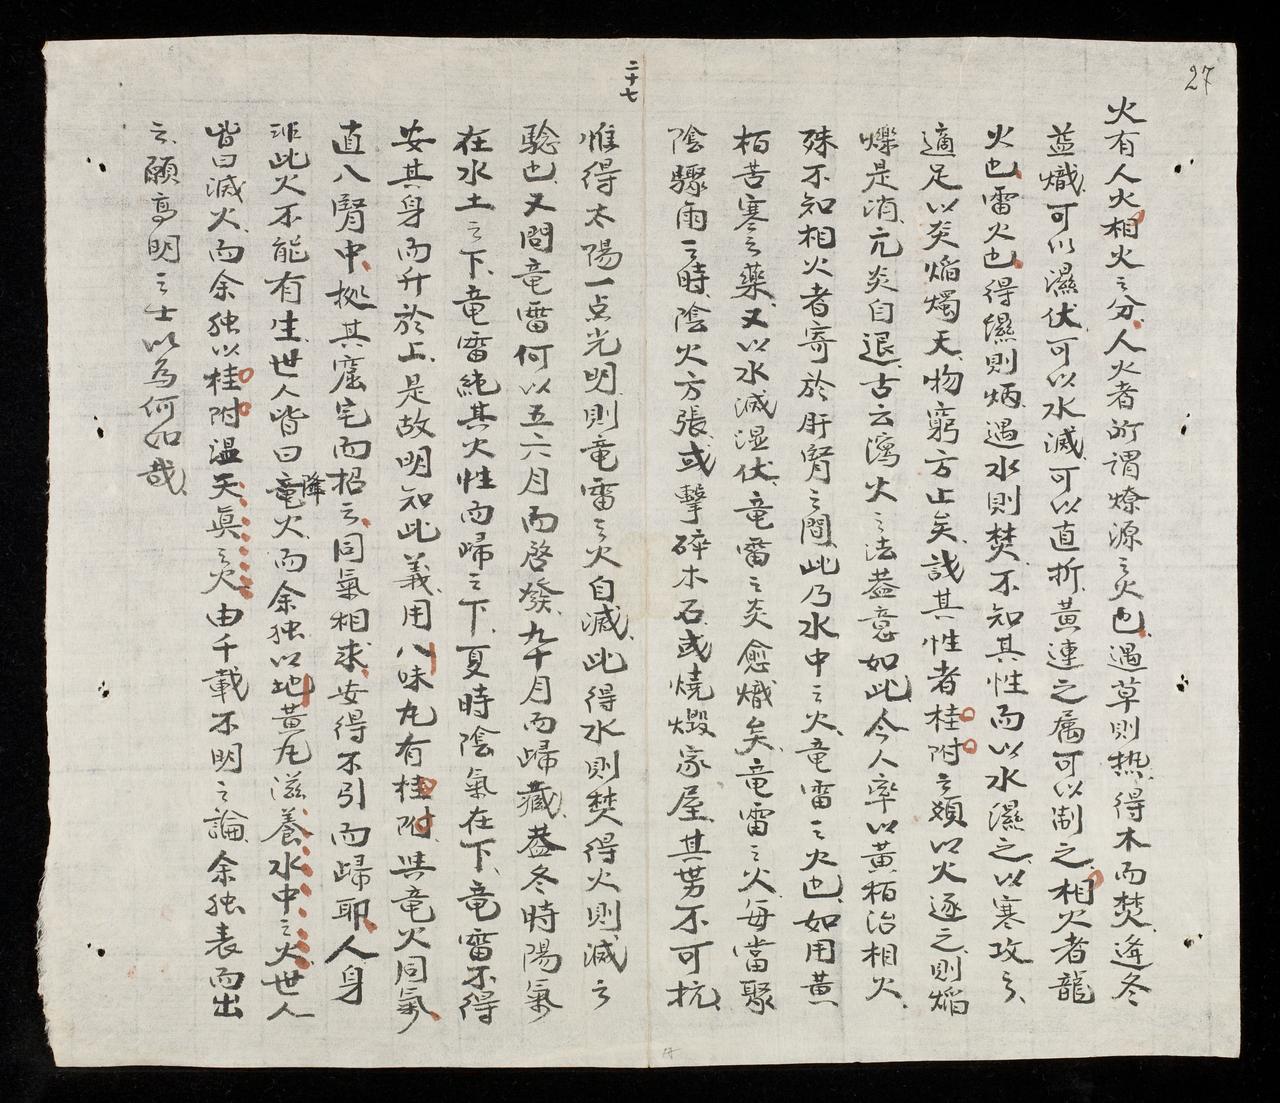 27
火有人火相火之分人火者所謂燎源之火也遇草則热得木而焚逢冬
益熾可以濕伏可以水滅可以直折黃連之属可以制之相火者龍
火也雷火也得濕則炳遇水則焚不知其性而以水濕之以寒攻之
適足以炎焰燭天物窮方止矣識其性者桂附之類以火逐之則焰
爍是消亢炎自退古云瀉火之法葢意如此今人率以黃栢治相火
殊不知相火者寄於肝腎之間此乃水中之火竜雷之火也如用黃
栢苦寒之藥又以水滅湿伏竜雷之炎愈熾矣竜雷之火每當聚
陰驟雨之時陰火方張或擊碎木石或燒燬家屋其势不可抗
二十七
惟得太陽一点光明則竜雷之火自滅此得水則焚得火則滅之
騐也又問竜雷何以五六月而啓發九十月而歸藏葢冬時陽氣
在水土之下竜雷純其火性而歸之下夏時陰氣在下竜雷不得
安其身而升於上是故明知此義用八味丸有桂附與竜火同氣
直八腎中拠其窟宅而招之同氣相求安得不引而歸耶人身
非此火不能有生世人皆曰竜火而余独以地黃丸滋養水中之火世人
降
皆曰滅火而余独以桂附温天眞之火由千載不明之論余独表而出
之願高明之士以為何如哉